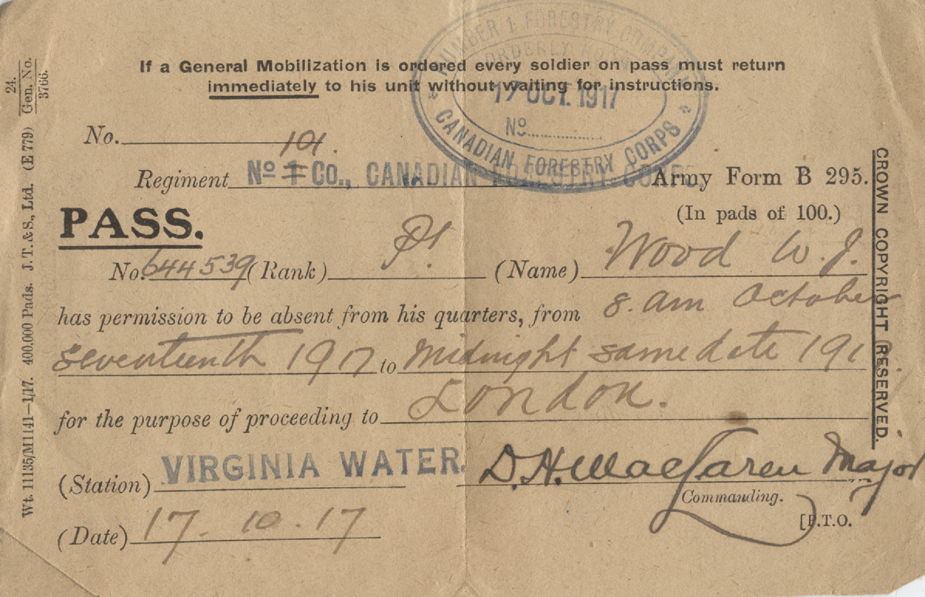 If a General Mobilization is ordered every soldier on pass must return
immediately to his unit without waiting for instructions.
NUMBER 1 FORESTRY COMPANY
ORDERLY ROOM
17 OCT. 1917
Nº
CANADIAN FORESTRY CORPS
No. 101.
Regiment Nº 1 Co., CANADIAN FORESTRY CORPS
Army Form B 295.
(In pads of 100.)
PASS.
No. 644539 (Rank) Pt. (Name) Wood W. J.
has permission to be absent from his quarters, from 8. am October
seventeenth 1917 to Midnight same date 191
for the purpose of proceeding to London.
(Station) VIRGINIA WATER. D. H. MacLaren Major
Commanding.
(Date) 17. 10. 17
[P.T.O.
CROWN COPYRIGHT RESERVED.
Wt. 11135/M1141—1/17. 400,000 Pads. J. T. & S., Ltd. (E 779) Gen. No.
24. 3766.